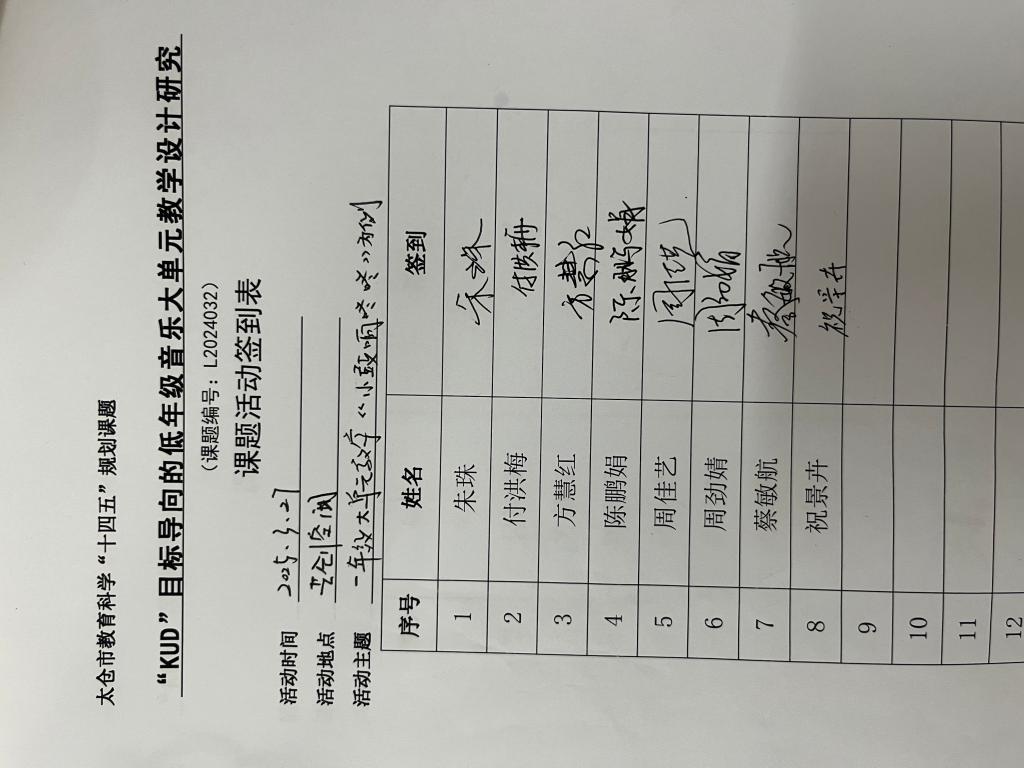 太仓市教育科学“十四五”规划课题
“KUD”目标导向的低年级音乐大单元教学设计研究
（课题编号：L2024032）
课题活动签到表
活动时间 2025.3.27
活动地点 共创空间
活动主题 一年级大单元教学《小鼓响咚咚》为例
序号 姓名 签到
1 朱珠 朱珠
2 付洪梅 付洪梅
3 方慧红 方慧红
4 陈鹏娟 陈鹏娟
5 周佳艺 周佳艺
6 周劲婧 周劲婧
7 蔡敏航 蔡敏航
8 祝景卉 祝景卉
9
10
11
12